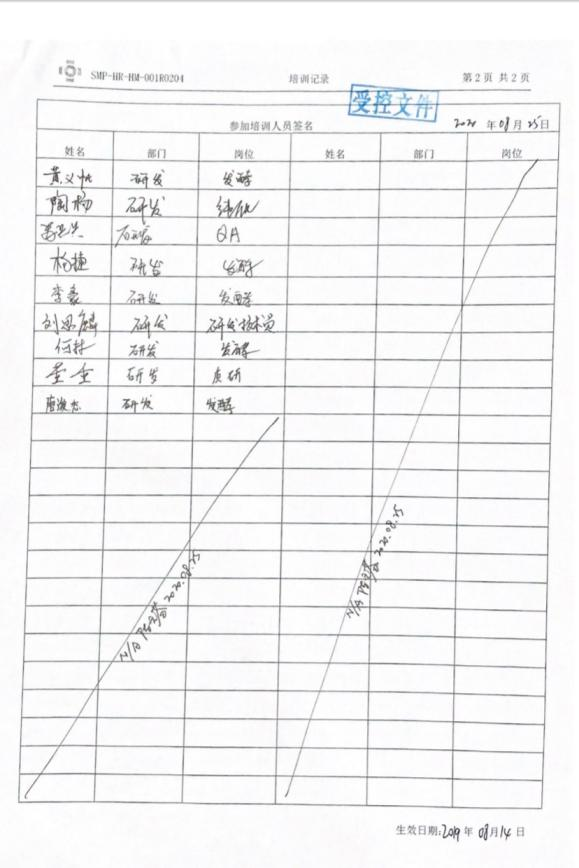 SMP-HR-HM-001R0204 培训记录 第 2 页 共 2 页
受控文件
参加培训人员签名 2020 年 08 月 25 日
姓名 部门 岗位 姓名 部门 岗位
研发 发酵
陶杨 研发 纯化
研发 QA
杨捷 研发 发酵
李豪 研发 发酵
刘思麟 研发 研发技术员
何林 研发 发酵
董金 研发 质研
唐俊杰 研发 发酵
N/A 2020.08.25
N/A 2020.08.25
生效日期:2019 年 08 月 14 日